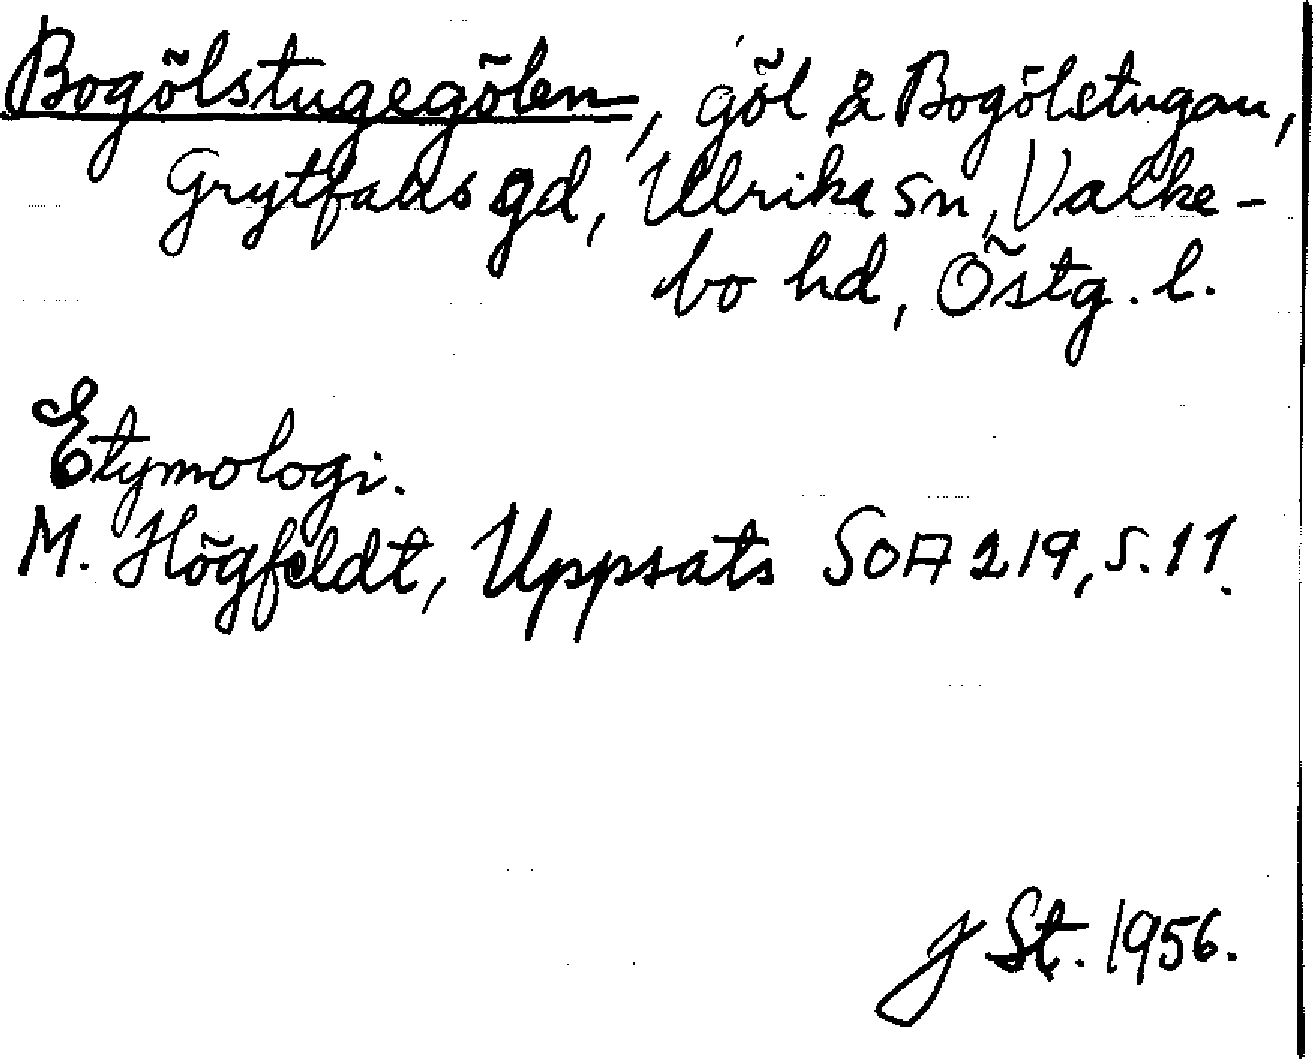 Bogölstugegölen, göl å Bogölstugan,
Grytfalls gd, Ulrika sn, Valke-
bo hd, Östg. l.
Etymologi.
M. Högfeldt, Uppsats SOA 219, s. 11.
J St. 1956.